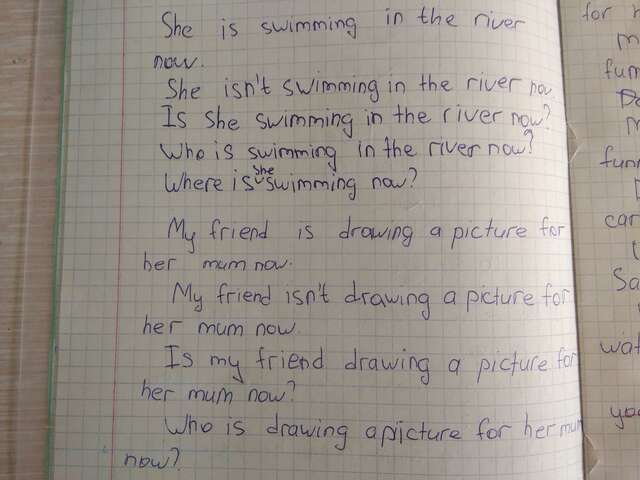 She is swimming in the river
now.
She isn't swimming in the river now
Is she swimming in the river now?
Who is swimming in the river now?
Where is she swimming now?
My friend is drawing a picture for
her mum now.
My friend isn't drawing a picture for
her mum now.
Is my friend drawing a picture for
her mum now?
Who is drawing a picture for her mum
now?
for
fun
car
Sa
wat
you